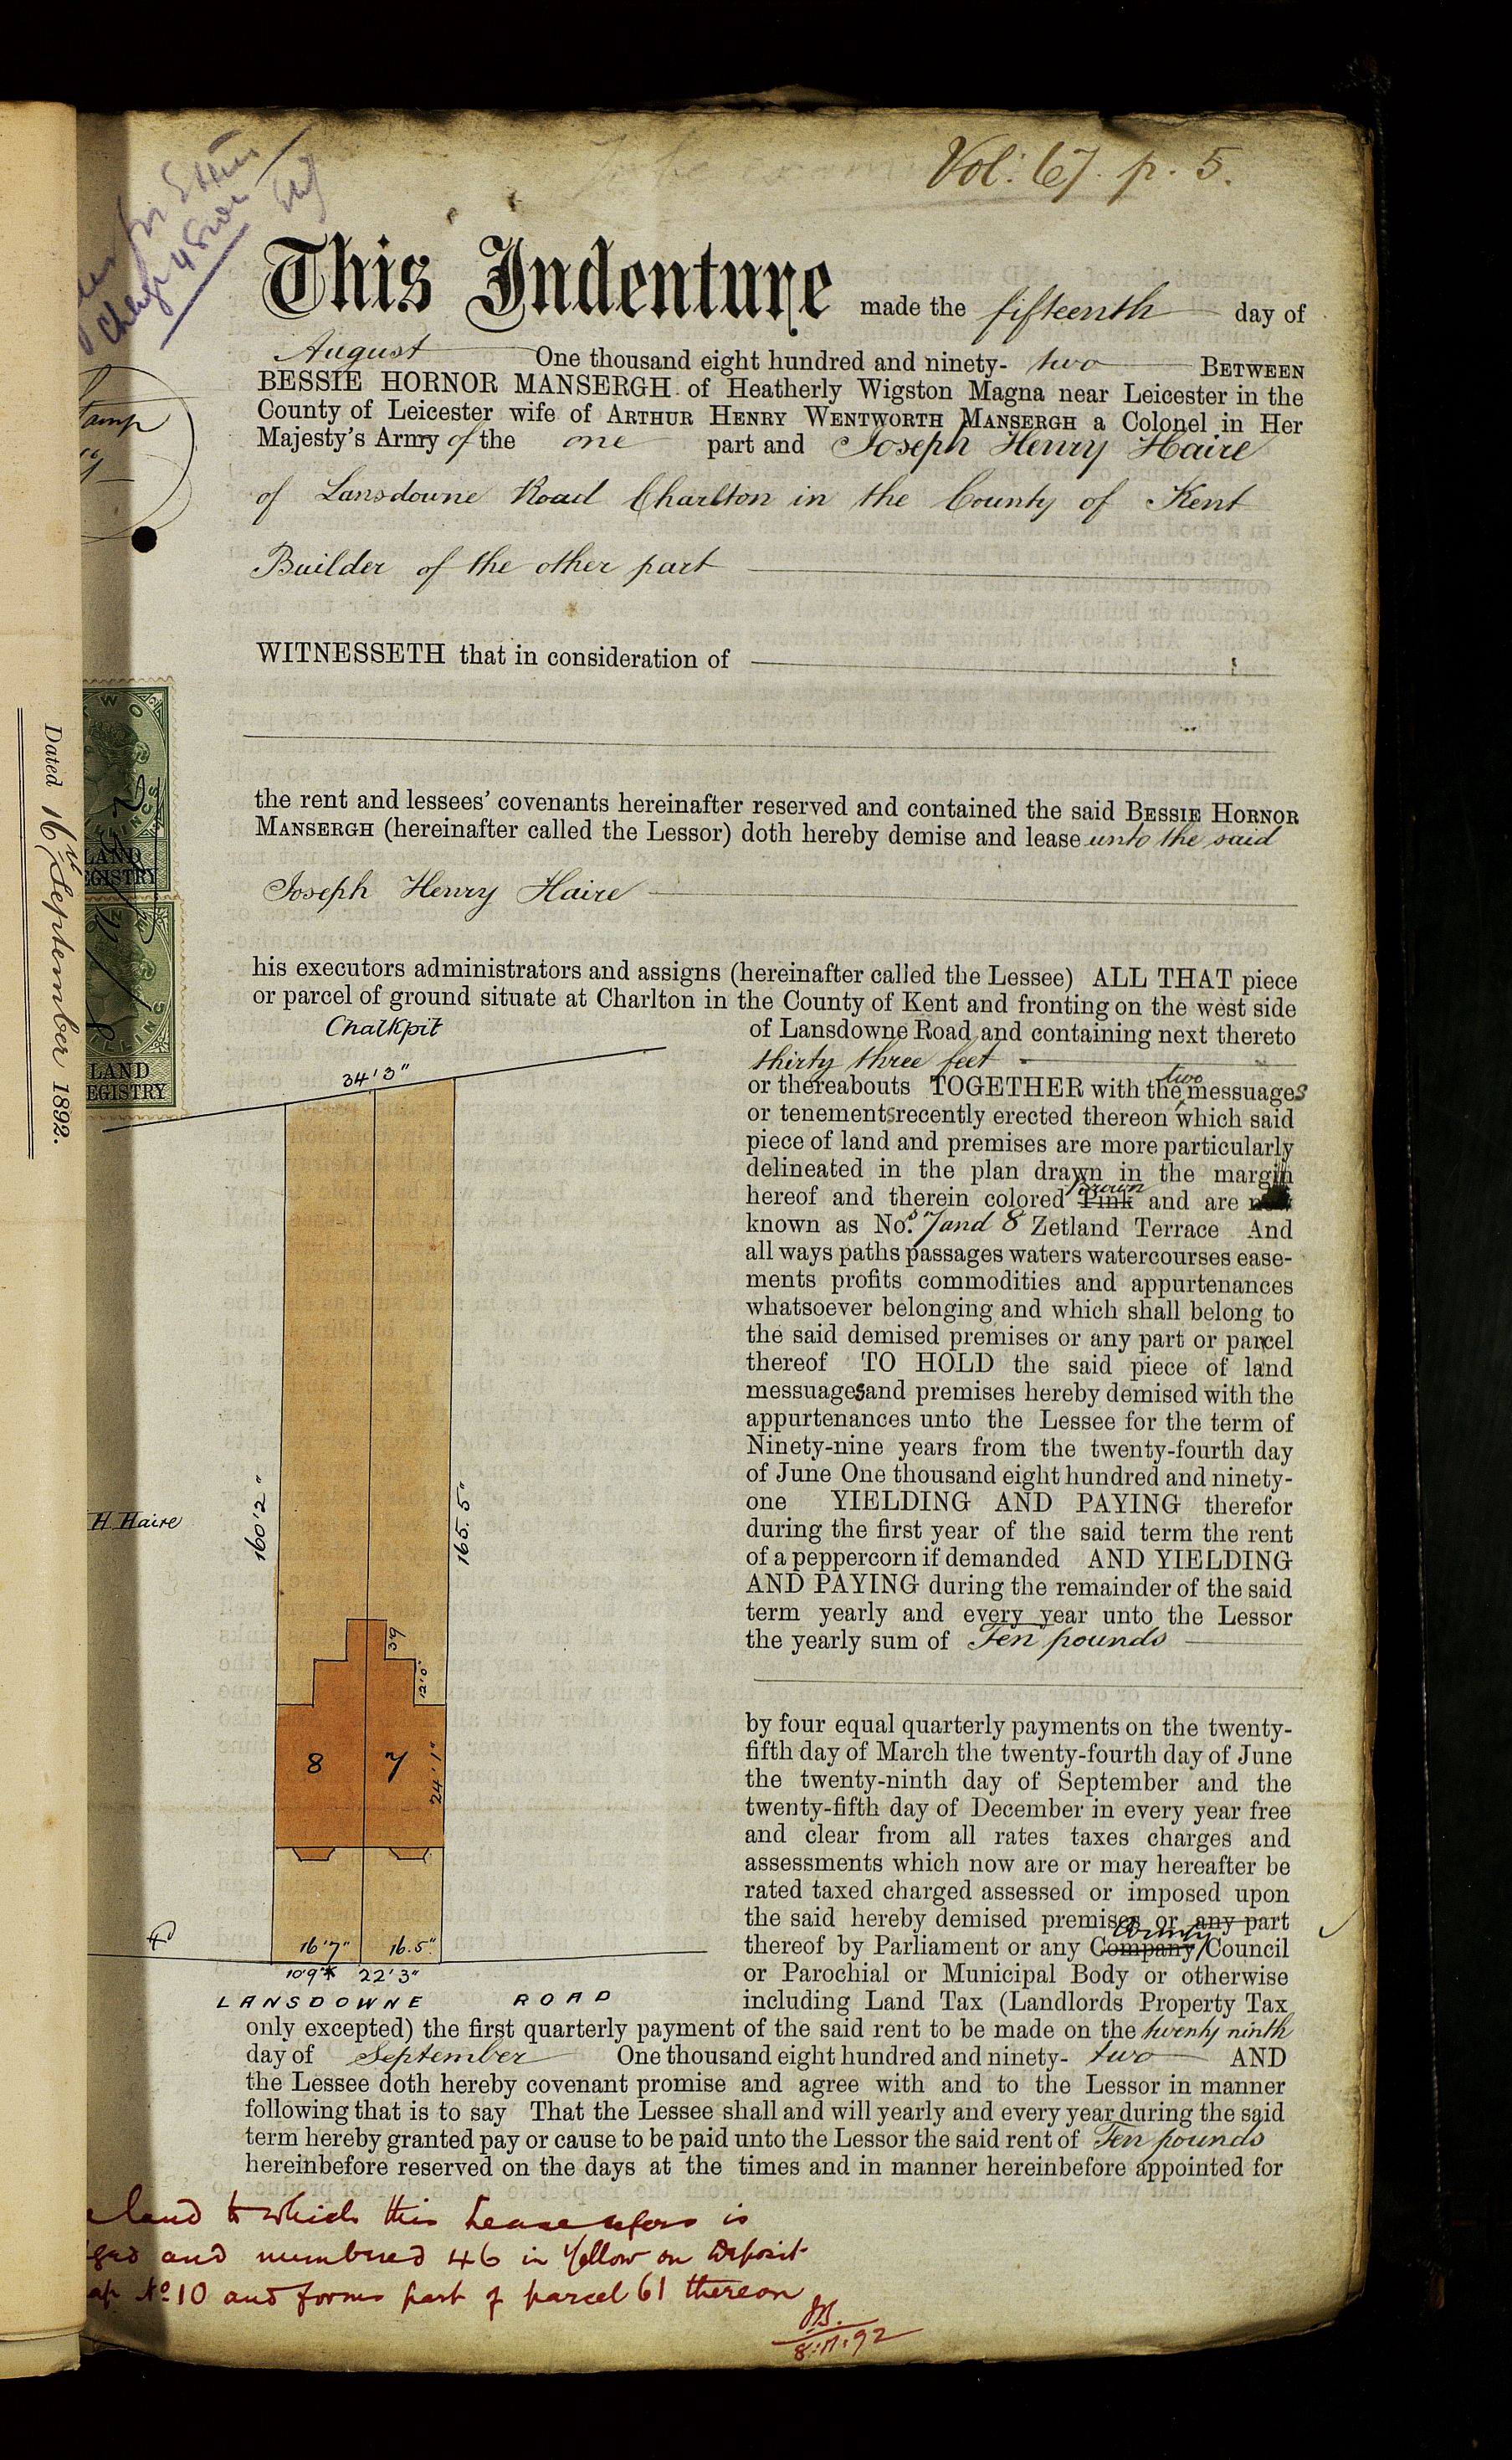 Vol: 67. p. 5.
This Indenture made the fifteenth day of
August One thousand eight hundred and ninety- two BETWEEN
BESSIE HORNOR MANSERGH of Heatherly Wigston Magna near Leicester in the
County of Leicester wife of ARTHUR HENRY WENTWORTH MANSERGH a Colonel in Her
Majesty's Army of the one part and Joseph Henry Haire
of Lansdowne Road Charlton in the County of Kent
Builder of the other part
WITNESSETH that in consideration of
the rent and lessees' covenants hereinafter reserved and contained the said BESSIE HORNOR
MANSERGH (hereinafter called the Lessor) doth hereby demise and lease unto the said
Joseph Henry Haire
his executors administrators and assigns (hereinafter called the Lessee) ALL THAT piece
or parcel of ground situate at Charlton in the County of Kent and fronting on the west side
of Lansdowne Road and containing next thereto
thirty three feet
or thereabouts TOGETHER with the two messuages
or tenements recently erected thereon which said
piece of land and premises are more particularly
delineated in the plan drawn in the margin
hereof and therein colored Pink Brown and are now
known as Nos. 7 and 8 Zetland Terrace And
all ways paths passages waters watercourses ease-
ments profits commodities and appurtenances
whatsoever belonging and which shall belong to
the said demised premises or any part or parcel
thereof TO HOLD the said piece of land
messuages and premises hereby demised with the
appurtenances unto the Lessee for the term of
Ninety-nine years from the twenty-fourth day
of June One thousand eight hundred and ninety-
one YIELDING AND PAYING therefor
during the first year of the said term the rent
of a peppercorn if demanded AND YIELDING
AND PAYING during the remainder of the said
term yearly and every year unto the Lessor
the yearly sum of Ten pounds
by four equal quarterly payments on the twenty-
fifth day of March the twenty-fourth day of June
the twenty-ninth day of September and the
twenty-fifth day of December in every year free
and clear from all rates taxes charges and
assessments which now are or may hereafter be
rated taxed charged assessed or imposed upon
the said hereby demised premises or any part
thereof by Parliament or any Company County Council
or Parochial or Municipal Body or otherwise
including Land Tax (Landlords Property Tax
only excepted) the first quarterly payment of the said rent to be made on the twenty ninth
day of September One thousand eight hundred and ninety- two AND
the Lessee doth hereby covenant promise and agree with and to the Lessor in manner
following that is to say That the Lessee shall and will yearly and every year during the said
term hereby granted pay or cause to be paid unto the Lessor the said rent of Ten pounds
hereinbefore reserved on the days at the times and in manner hereinbefore appointed for
Chalkpit
34'3"
160'2"
165.5"
H Haire
3'9
12'0"
24'1"
8 7
16'7" 16.5"
10'9" 22'3"
LANSDOWNE ROAD
land to which this Lease refers is
and numbered 46 in Yellow on Deposit
No 10 and forms part of parcel 61 thereon
8:11:92
Dated 16th September 1892.
LAND
REGISTRY
LAND
REGISTRY